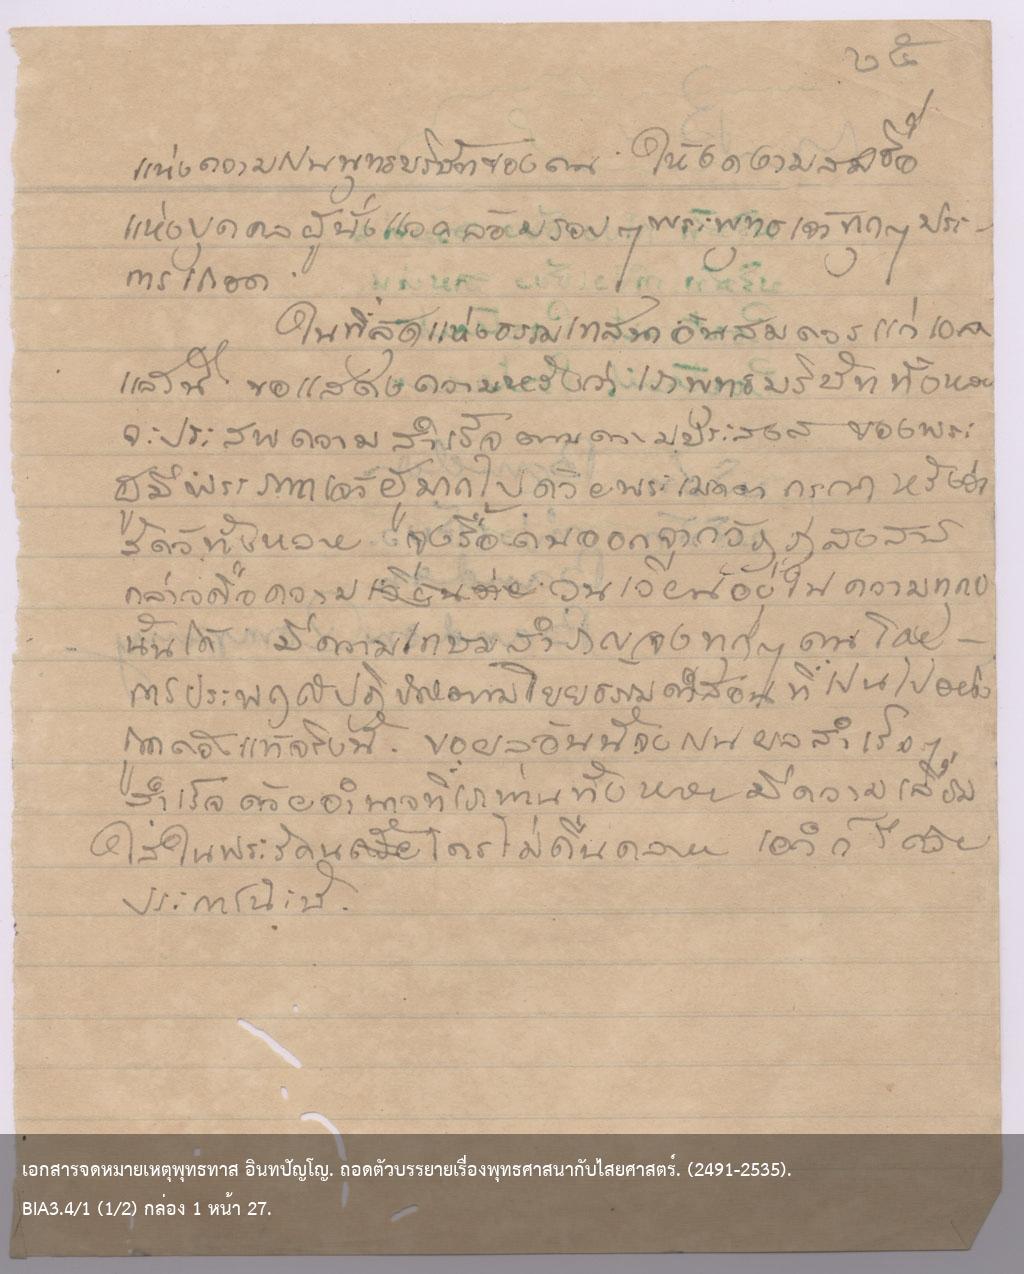 ๒๕
แห่งความเป็นพุทธบริษัทของตน ให้งดงามสมชื่อ
แห่งบุคคลผู้นั่งแวดล้อมรอบๆพระพุทธเจ้าทุกๆประ-
การเถอด.
ในที่สุดแห่งธรรมเทสนาอันสมควรแก่เวลา
แล้วนี้ ขอแสดงความหวังว่า เราพุทธบริษัททั้งหลาย
จะประสพความสำเร็จตามความประสงค์ ของพระ
ผู้มีพระภาคเจ้าผู้มากไปด้วยพระเมตตา กรุณา หวังว่า
สัตว์ทั้งหลาย จงรื้อตนออกจากวัฏฏสงสาร
กล่าวคือความ วนเวียนอยู่ในความทุกข์
นั้นได้ มีความเกษมสำราญจงทุกๆคน โดย-
การประพฤติปฏิบัติตามนิยยธรรมคำสอนที่เป็นไปอย่าง
ถูกต้องแท้จริงนี้. ขอผลอันนี้จงเป็นผลสำเร็จๆ,
สำเร็จด้วยอำนาจที่เราท่านทั้งหลาย มีความเลื่อม
ใสในพระรัตนตรัย ไม่คืนคลาย เอวํ ก็ด้วย
ประการฉะนี้.
เอกสารจดหมายเหตุพุทธทาส อินทปัญโญ. ถอดตัวบรรยายเรื่องพุทธศาสนากับไสยศาสตร์. (2491-2535).
BIA3.4/1 (1/2) กล่อง 1 หน้า 27.